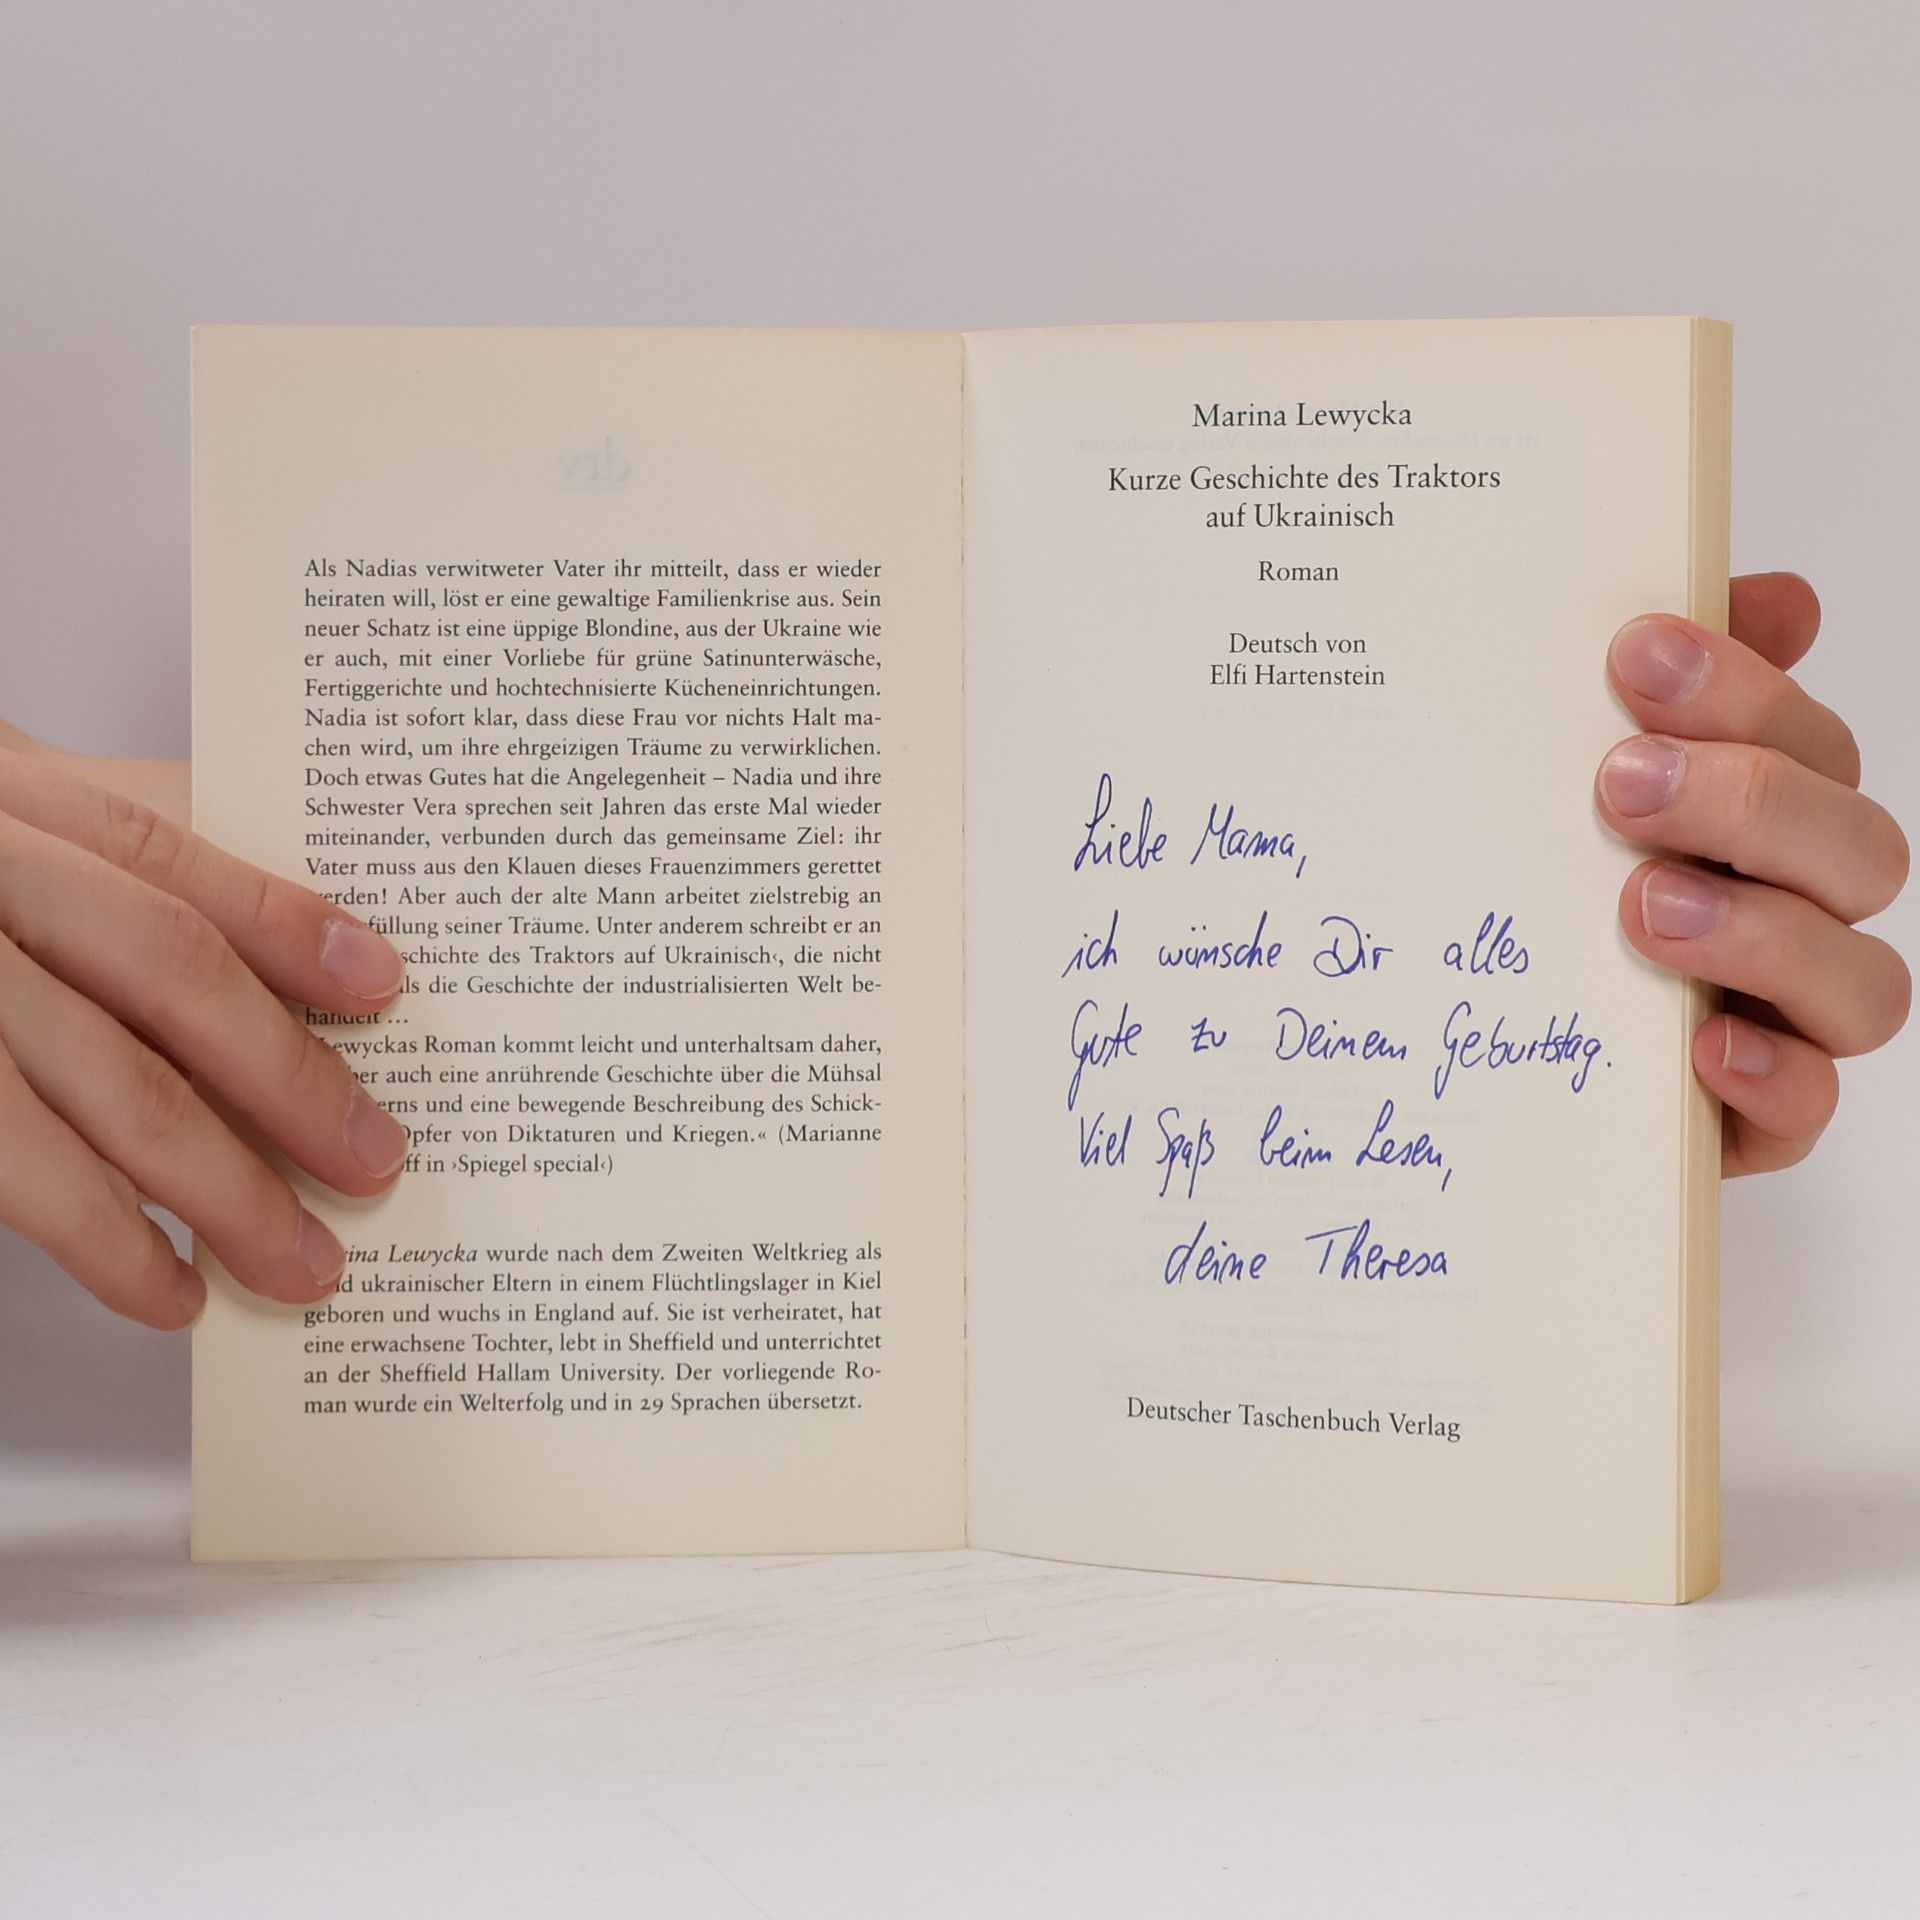 Als Nadias verwitweter Vater ihr mitteilt, dass er wieder
heiraten will, löst er eine gewaltige Familienkrise aus. Sein
neuer Schatz ist eine üppige Blondine, aus der Ukraine wie
er auch, mit einer Vorliebe für grüne Satinunterwäsche,
Fertiggerichte und hochtechnisierte Kücheneinrichtungen.
Nadia ist sofort klar, dass diese Frau vor nichts Halt ma-
chen wird, um ihre ehrgeizigen Träume zu verwirklichen.
Doch etwas Gutes hat die Angelegenheit – Nadia und ihre
Schwester Vera sprechen seit Jahren das erste Mal wieder
miteinander, verbunden durch das gemeinsame Ziel: ihr
Vater muss aus den Klauen dieses Frauenzimmers gerettet
werden! Aber auch der alte Mann arbeitet zielstrebig an
seiner Träume. Unter anderem schreibt er an
des Traktors auf Ukrainisch‹, die nicht
die Geschichte der industrialisierten Welt be-
handelt ...
Lewyckas Roman kommt leicht und unterhaltsam daher,
auch eine anrührende Geschichte über die Mühsal
und eine bewegende Beschreibung des Schick-
Opfer von Diktaturen und Kriegen.« (Marianne
in ›Spiegel special‹)
Marina Lewycka wurde nach dem Zweiten Weltkrieg als
ukrainischer Eltern in einem Flüchtlingslager in Kiel
geboren und wuchs in England auf. Sie ist verheiratet, hat
eine erwachsene Tochter, lebt in Sheffield und unterrichtet
an der Sheffield Hallam University. Der vorliegende Ro-
man wurde ein Welterfolg und in 29 Sprachen übersetzt.
Marina Lewycka
Kurze Geschichte des Traktors
auf Ukrainisch
Roman
Deutsch von
Elfi Hartenstein
Liebe Mama,
ich wünsche Dir alles
Gute zu Deinem Geburtstag.
Viel Spaß beim Lesen,
deine Theresa
Deutscher Taschenbuch Verlag